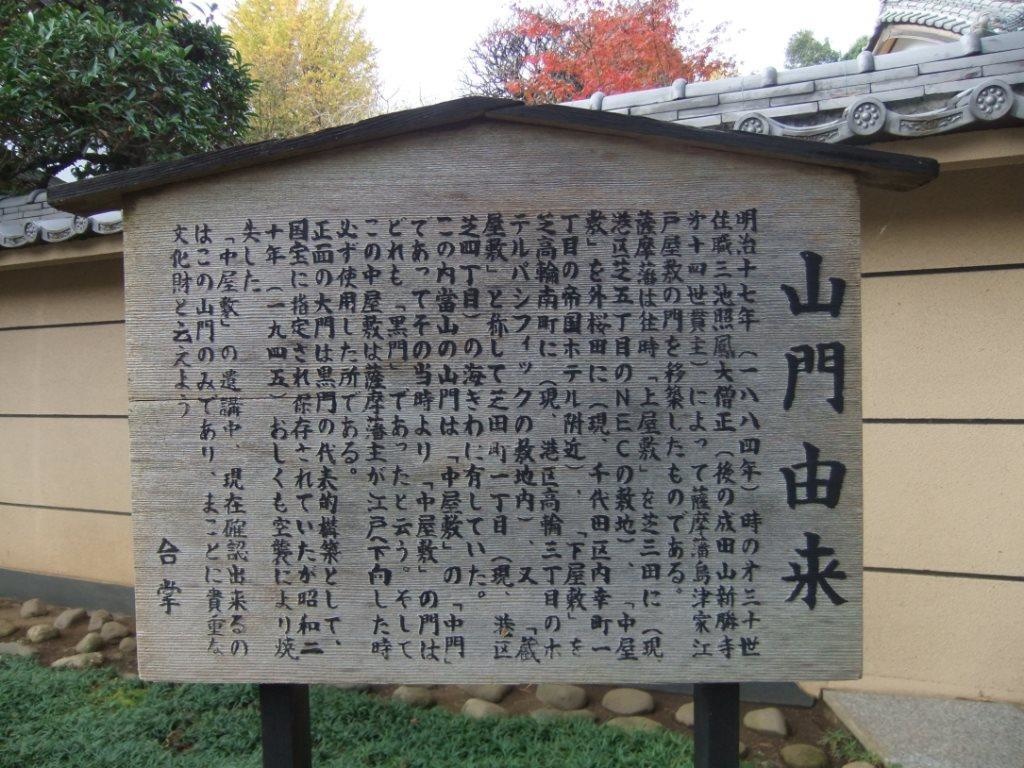 山門由来
明治十七年(一八八四年)時の才三十世
住職三池照鳳大僧正(後の成田山新勝寺
才十四世貫主)によって薩摩藩島津家江
戸屋敷の門を移築したものである。
薩摩藩は往時「上屋敷」を芝三田に(現
港区芝五丁目のNECの敷地)、「中屋
敷」を外桜田に(現、千代田区内幸町一
丁目の帝国ホテル附近)、「下屋敷」を
芝高輪南町に(現、港区高輪三丁目のホ
テルパシフィックの敷地内)、又「蔵
屋敷」と称して芝田町一丁目(現、港区
芝四丁目)の海ぎわに有していた。
この内當山の山門は「中屋敷」の「中門」
であってその当時より「中屋敷」の門は
どれも「黒門」であったと云う。そして
この中屋敷は薩摩藩主が江戸へ下向した時
必ず使用した所である。
正面の大門は黒門の代表的構築として、
国宝に指定され保存されていたが昭和二
十年(一九四五)おしくも空襲により焼
失した
「中屋敷」の遺講中、現在確認出来るの
はこの山門のみであり、まことに貴重な
文化財と云えよう
合掌